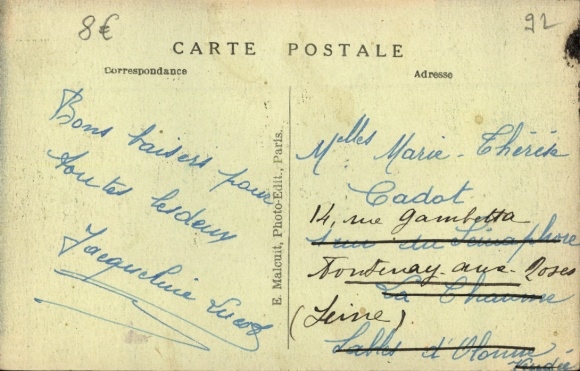 8€
92
CARTE POSTALE
Correspondance
Adresse
Bons baisers pour
toutes les deux
Jacqueline
E. Malcuit, Photo-Edit., Paris.
Mlles Marie-Thérèse
Cadot
14, rue Gambetta
du Sémaphore
Fontenay-aux-Roses
La Chaume
(Seine)
Sables d'Olonne
Vendée